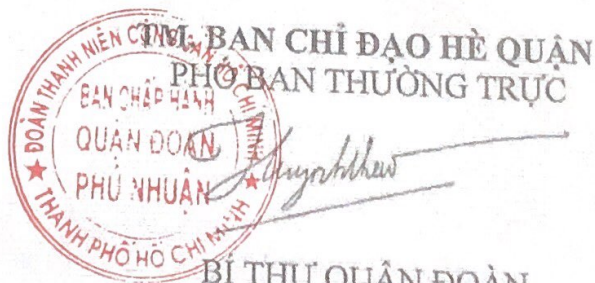 TM. BAN CHỈ ĐẠO HÈ QUẬN
PHÓ BAN THƯỜNG TRỰC
ĐOÀN THANH NIÊN CỘNG SẢN HỒ CHÍ MINH
BAN CHẤP HÀNH
QUẬN ĐOÀN
PHÚ NHUẬN
THÀNH PHỐ HỒ CHÍ MINH
BÍ THƯ QUẬN ĐOÀN